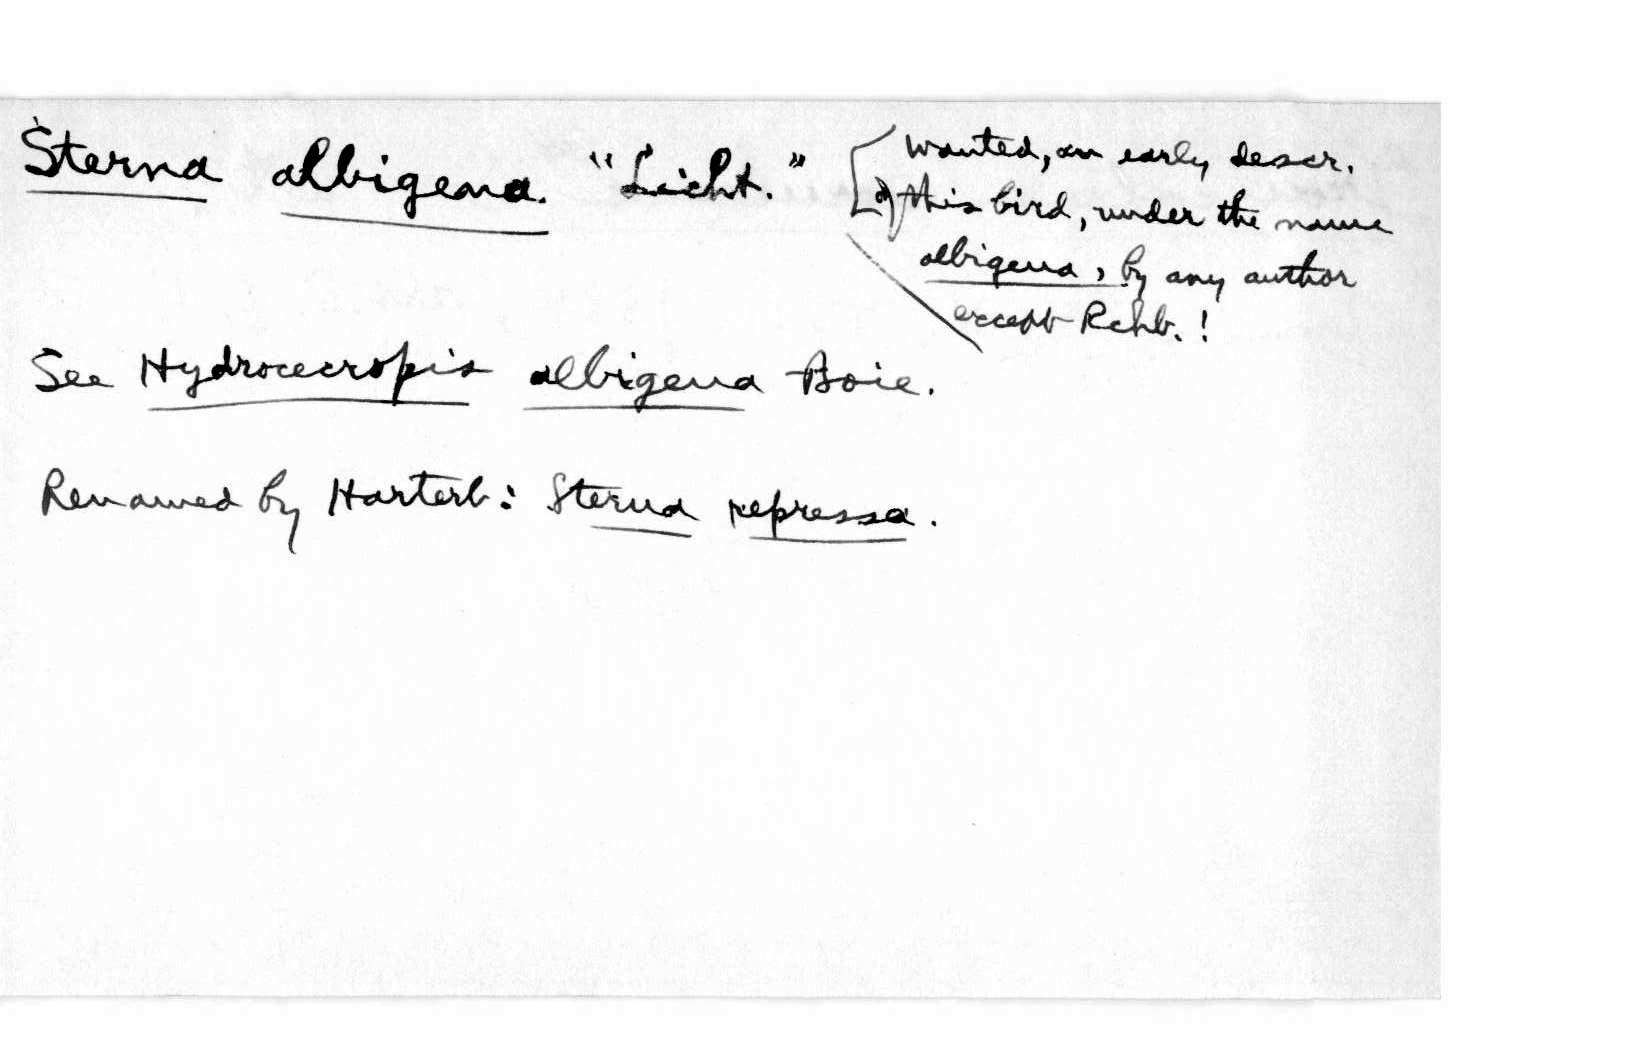 Sterna albigena. "Licht."
[Wanted, an early descr.
of this bird, under the name
albigena, by any author
except Rchb.!
See Hydrocecropis albigena Boie.
Renamed by Hartert: Sterna repressa.